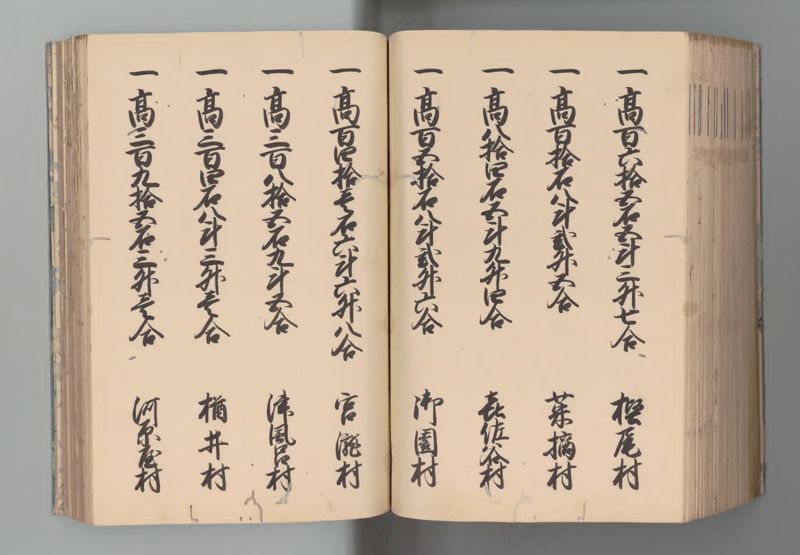 一 高百六拾五石五斗二升七合 樫尾村
一 高百拾石八斗弐升五合 菜摘村
一 高八拾四石五斗九升四合 喜佐谷村
一 高百五拾石八斗弐升六合 御園村
一 高百四拾壱石六斗六升八合 宮滝村
一 高三百八拾五石九斗五合 津風呂村
一 高三百四石八斗三升壱合 楢井村
一 高三百九拾五石三升壱合 河原屋村